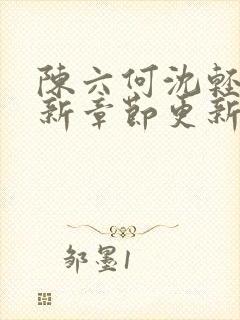 陳六何沈輕
新章節更新
邹墨1